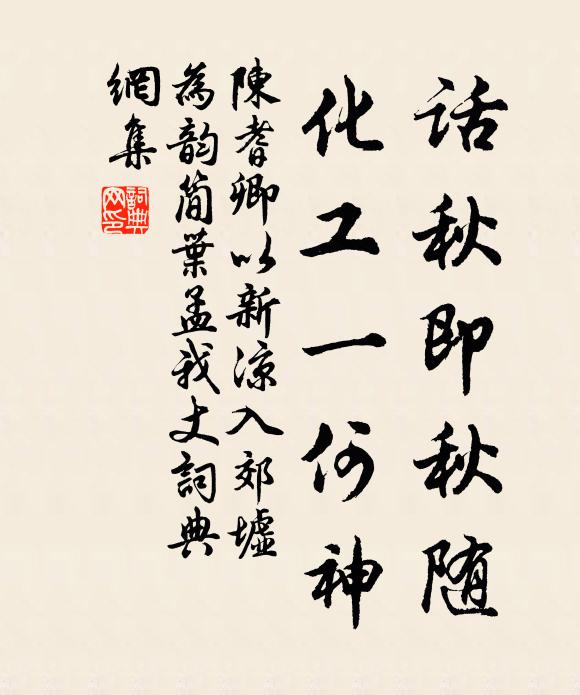 话秋即秋随
化工一何神
陳耆卿以新凉入郊墟
為韵简葉孟我丈詞典
網集
詞典
网印